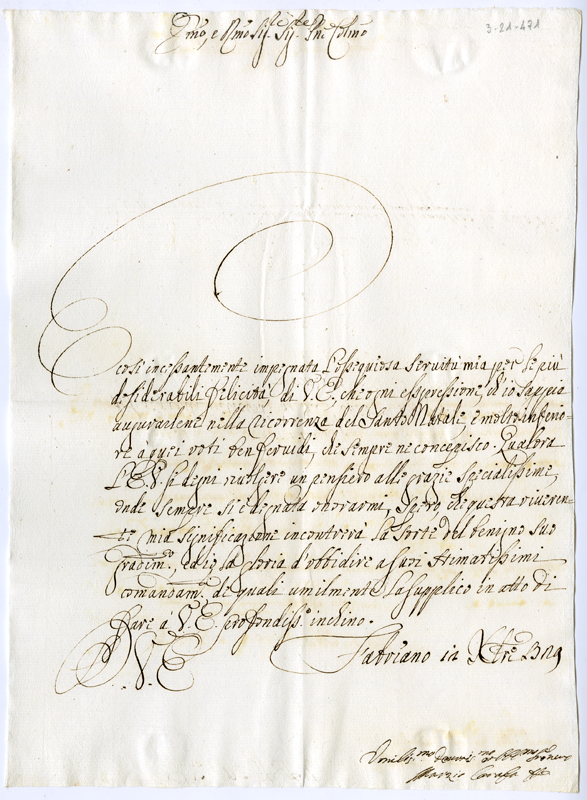 Emo, e Rmo Sig. Sig. Pne Colmo
3-21-471
E così incessantemente impegnata l'ossequiosa servitù mia per le più
desiderabili felicità di V. E., che ogni espressione, ch'io sappia
augurarlene nella ricorrenza del Santo Natale è molto inferio-
re a quei voti ben fervidi, che sempre ne concepisco. Qualora
l'E. V. si degni rivolgere un pensiero alle grazie specialissime,
onde sempre si è degnata onorarmi, spero che questa riveren-
te mia significazione incontrerà la sorte del benigno suo
gradim.o, ed io la gloria d'obbidire a suoi stimatissimi
comandam.ti de quali umilmente la supplico in atto di
fare à V. E. profondiss.o inchino.
D. V. E.
Fabriano 12 Xbre
Umilis.mo Devot.mo